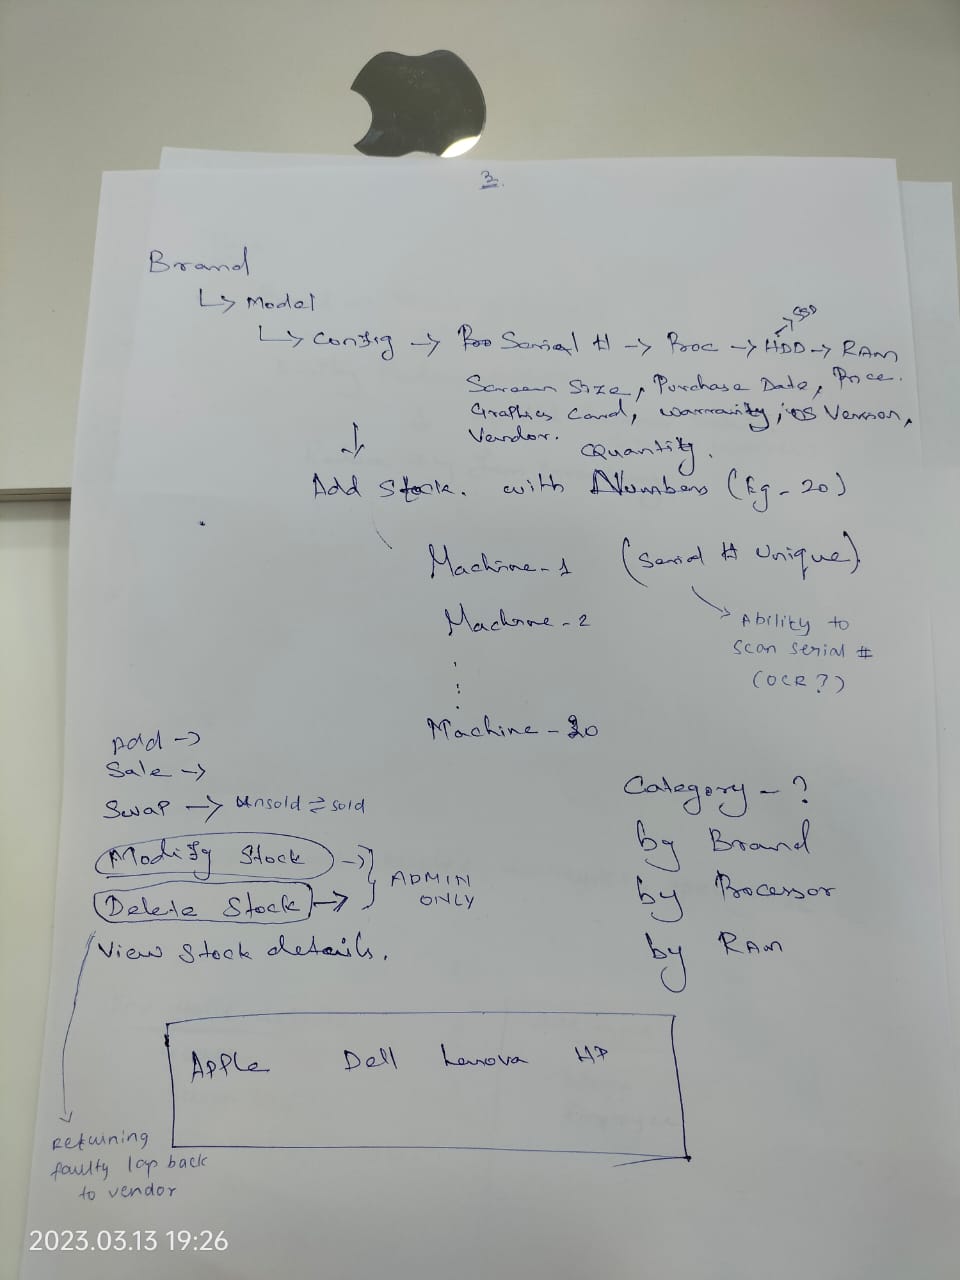 3.
Brand
↳ Model
↳ Config → Serial # → Proc → HDD → RAM
→ SSD
Screen Size, Purchase Date, Price.
Graphics Card, warranity, OS Version,
Vendor.
Quantity.
Add Stock. with Numbers (Eg - 20)
Machine - 1 (Serial # Unique)
Machine - 2
Ability to
scan serial #
(OCR?)
Machine - 20
Add →
Sale →
Swap → Unsold ⇄ sold
Modify Stock →
Delete Stock →
ADMIN
ONLY
View Stock details.
Category - ?
by Brand
by Processor
by RAM
Apple Dell Lenova HP
Retuining
faulty lap back
to vendor
2023.03.13 19:26